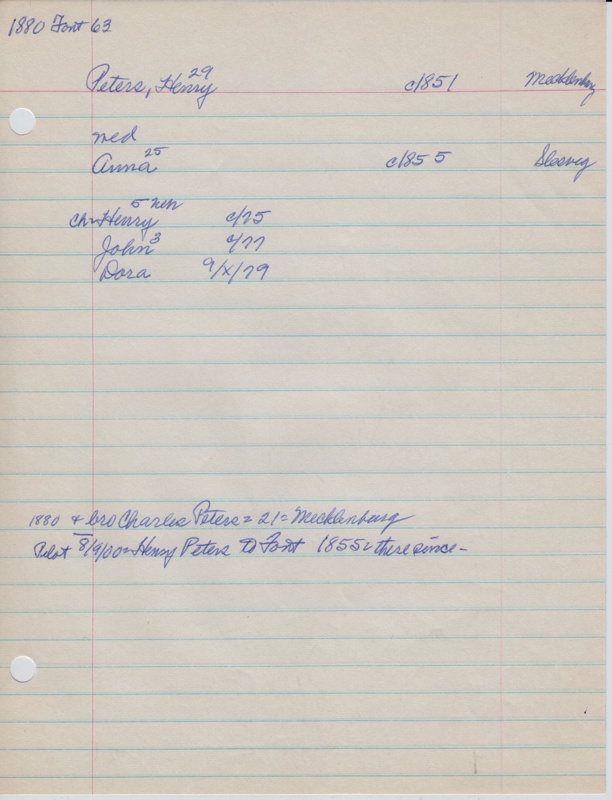 1880 Font 63
Peters, Henry 29 c/1851 Mecklenburg
med
Anna 25 c/1855
ch- Henry 5 c/75
John 3 c/77
Dora 9/x/79
1880 + bro Charles Peters = 21 = Mecklenburg
Pilot 8/9/00 = Henry Peters to Font 1855 & there since -